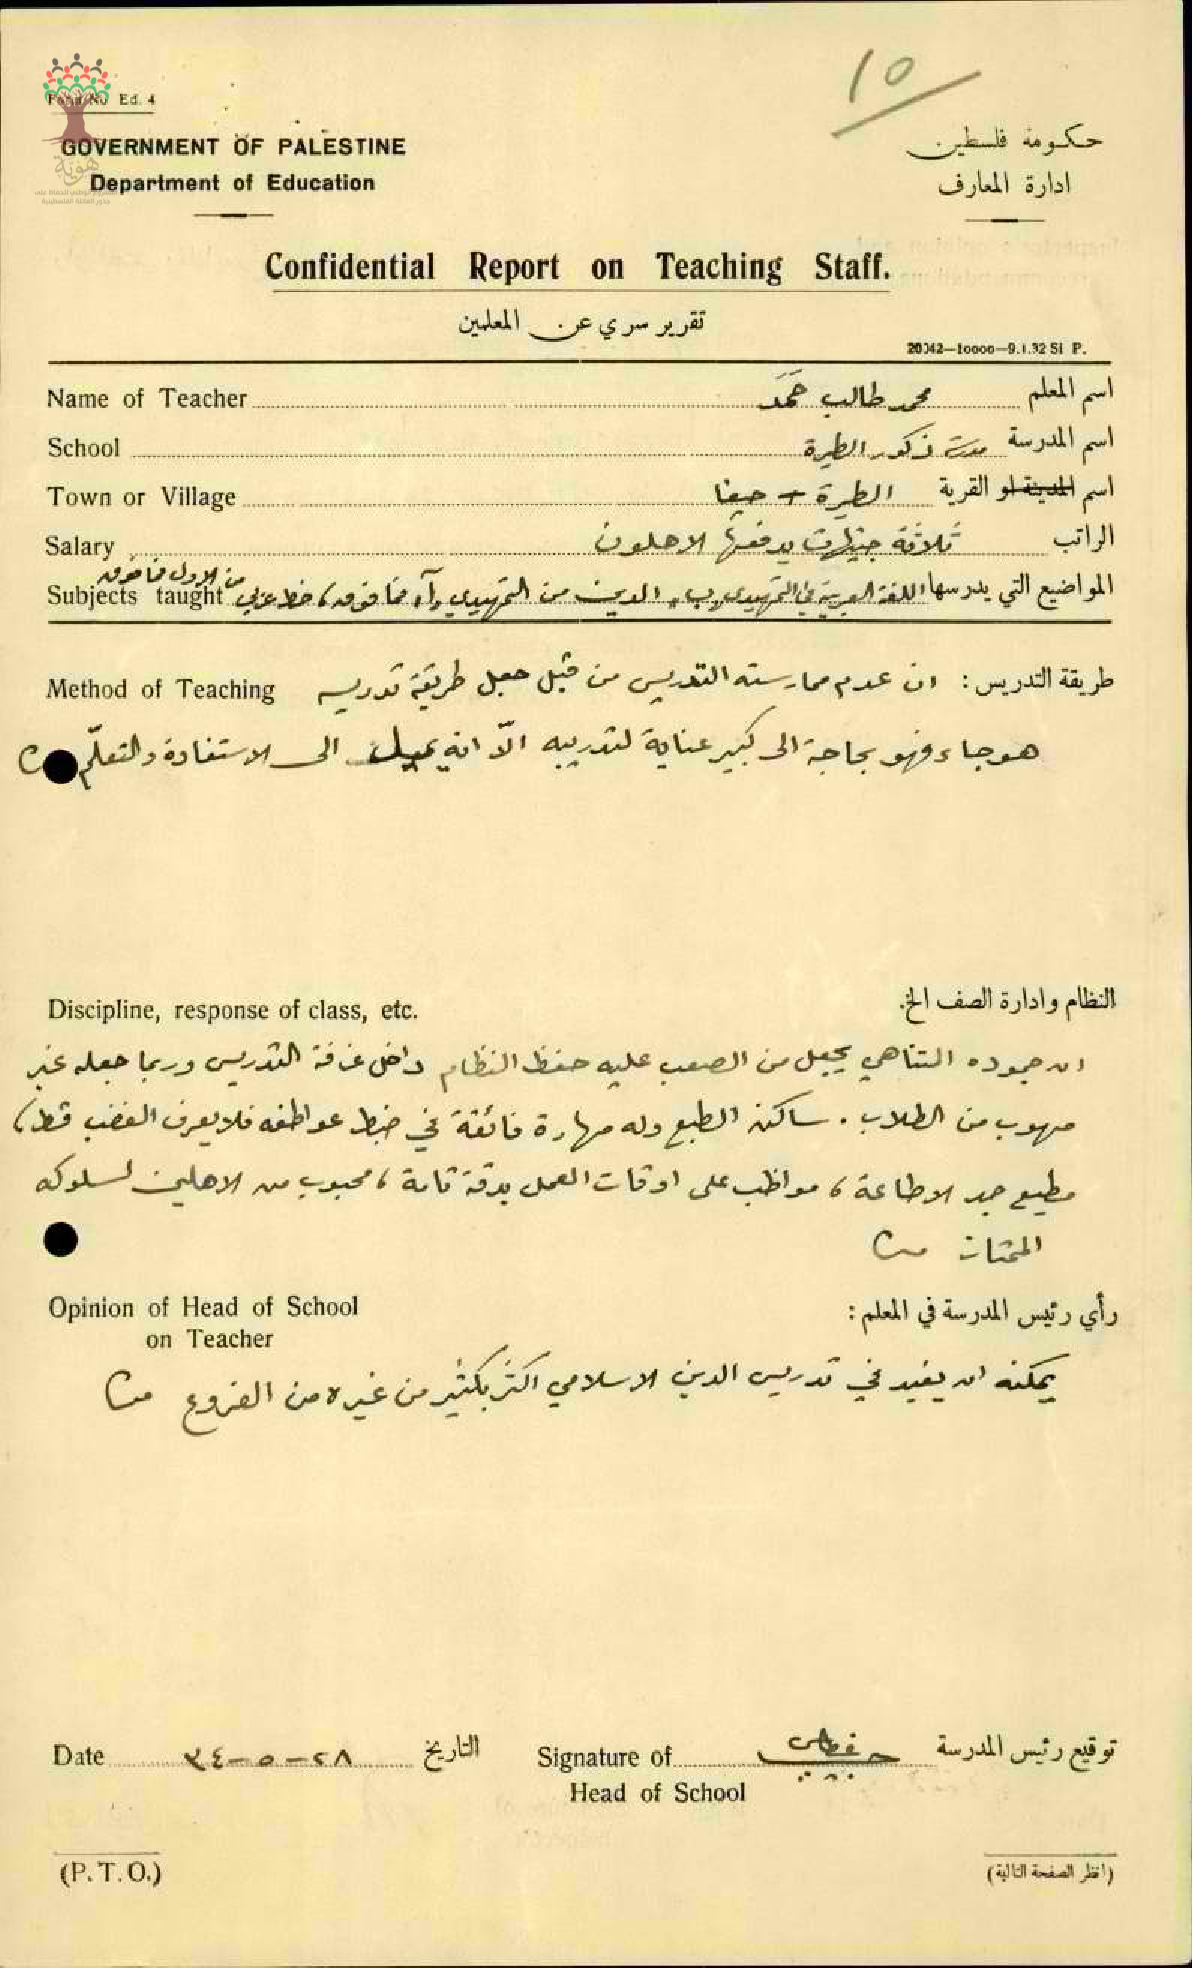 10
Form No Ed. 4
GOVERNMENT OF PALESTINE
Department of Education
حكومة فلسطين
ادارة المعارف
هوية
Confidential Report on Teaching Staff.
تقرير سري عن المعلمين
20042—10000—9.1.32 SI P.
Name of Teacher محمد طالب حَمَد اسم المعلم
School مدرسة ذكور الطيرة اسم المدرسة
Town or Village الطيرة - حيفا اسم المدينة او القرية
Salary ثلاثة جنيهات يدفعها الاهلون الراتب
Subjects taught المواضيع التي يدرسها اللغة العربية في التمهيدي ب، الدين من التمهيدي آ، فما فوق، خط عربي من الاول فما فوق
Method of Teaching طريقة التدريس: ان عدم ممارسته التدريس من قبل جعل طريقة تدريسه
هوجاء فهو بحاجة الى كبير عناية لتدريبه الّا انه يميل الى الاستفادة والتعلّم
Discipline, response of class, etc. النظام وادارة الصف الخ.
ان جموده المتناهي يجعل من الصعب عليه حفظ النظام داخل غرفة التدريس وربما جعله غير
مهوب من الطلاب. ساكن الطبع وله مهارة فائقة في ضبط عواطفه فلا يعرف الغضب قط،
مطيع جد الاطاعة، مواظب على اوقات العمل بدقة تامة، محبوب من الاهلين لسلوكه
الممتاز
Opinion of Head of School
on Teacher
رأي رئيس المدرسة في المعلم:
يمكنه ان يفيد في تدريس الدين الاسلامي اكثر بكثير من غيره من الفروع
Date ٢٨-٥-٣٤ التاريخ
Signature of
Head of School
توقيع رئيس المدرسة
(P. T. O.)
(انظر الصفحة التالية)